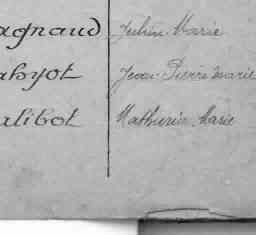 agnaud Julien Marie
ahyot Jean Pierre marie
alibot Mathurin Marie